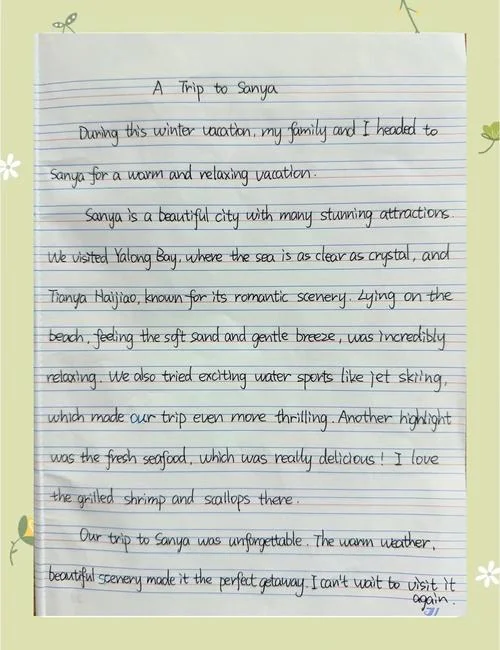 A Trip to Sanya
During this winter vacation, my family and I headed to
Sanya for a warm and relaxing vacation.
Sanya is a beautiful city with many stunning attractions.
We visited Yalong Bay, where the sea is as clear as crystal, and
Tianya Haijiao, known for its romantic scenery. Lying on the
beach, feeling the soft sand and gentle breeze, was incredibly
relaxing. We also tried exciting water sports like jet skiing,
which made our trip even more thrilling. Another highlight
was the fresh seafood, which was really delicious! I love
the grilled shrimp and scallops there.
Our trip to Sanya was unforgettable. The warm weather,
beautiful scenery made it the perfect getaway. I can't wait to visit it
again.